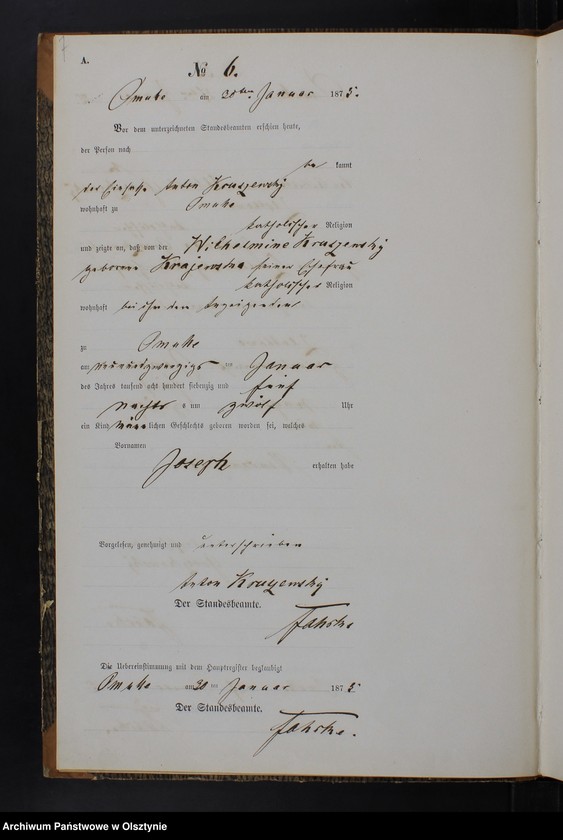 A.
№ 6.
am 30ten Januar 1875.
Vor dem unterzeichneten Standesbeamten erschien heute,
der Person nach
be kannt
der Anton Kraszewsky
wohnhaft zu
katholischer Religion
und zeigte an, daß von der Wilhelmine Kraszewsky
geborene Krajewska seiner Ehefrau
katholischer Religion
wohnhaft bei ihm dem Anzeigenden
zu
am neunundzwanzigs ten Januar
des Jahres tausend acht hundert siebenzig und fünf
nachts um zwölf Uhr
ein Kind männlichen Geschlechts geboren worden sei, welches
Vornamen
Joseph erhalten habe
Vorgelesen, genehmigt und unterschrieben
Anton Kraszewsky
Der Standesbeamte.
Die Uebereinstimmung mit dem Hauptregister beglaubigt
am 30 ten Januar 1875
Der Standesbeamte.
Archiwum Państwowe w Olsztynie